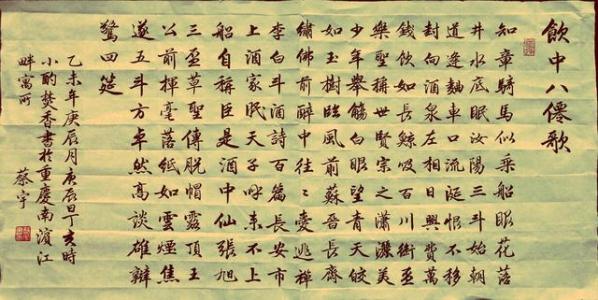 飲中八僊歌
知章騎馬似乘船眼花落
井水底眠汝陽三斗始朝
道逢麯車口流涎恨不移
封向酒泉左相日興費萬
錢飲如長鯨吸百川銜盃
樂聖稱世賢宗之瀟灑美
少年舉觴白眼望青天皎
如玉樹臨風前蘇晉長齋
繡佛前醉中往々愛逃禪
李白斗酒詩百篇長安市
上酒家眠天子呼來不上
船自稱臣是酒中仙張旭
三盃草聖傳脫帽露頂王
公前揮毫落紙如雲煙焦
遂五斗方卓然高談雄辯
驚四筵
乙未年庚辰月庚辰日丁亥時
小酌焚香書於重慶南濱江
畔寓所
蔡宇